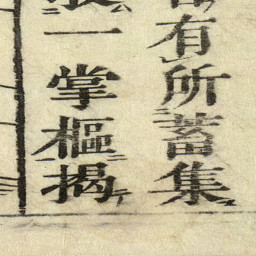 有所蓄集
一掌樞揭